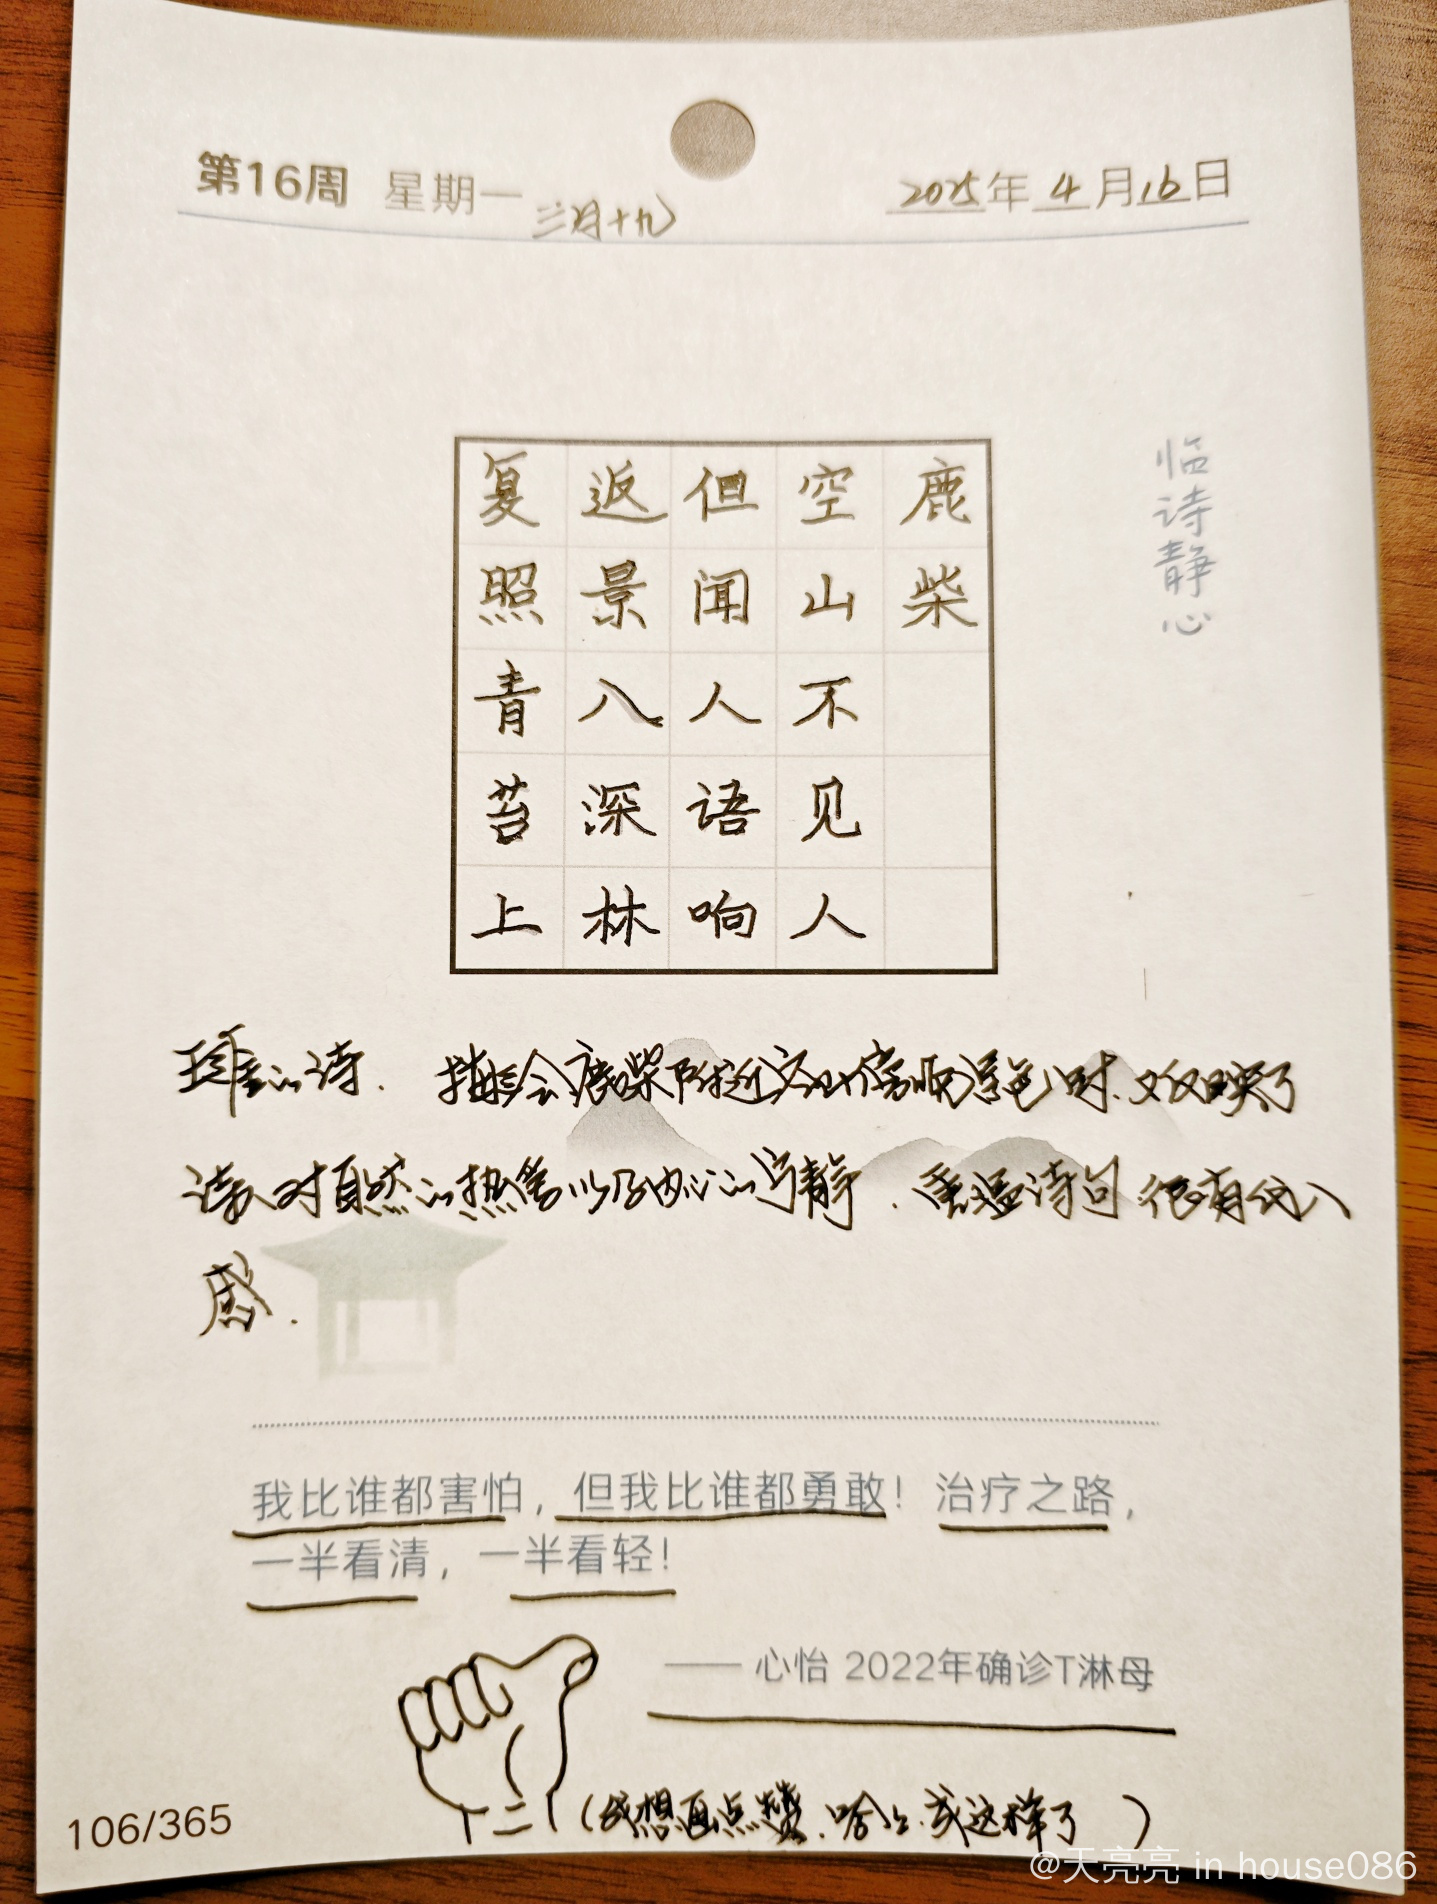 第16周 星期一 三月十九 2025年4月16日
临诗静心
鹿柴
空山不见人
但闻人语响
返景入深林
复照青苔上
王维的诗. 描绘鹿柴附近空山深林傍晚景色时. 反映了
诗人对自然的热爱以及内心的宁静. 重温诗句 很有代入
感.
我比谁都害怕，但我比谁都勇敢！治疗之路，
一半看清，一半看轻！
—— 心怡 2022年确诊T淋母
(我想画点赞. 哈哈. 成这样了 )
106/365
@天亮亮 in house086